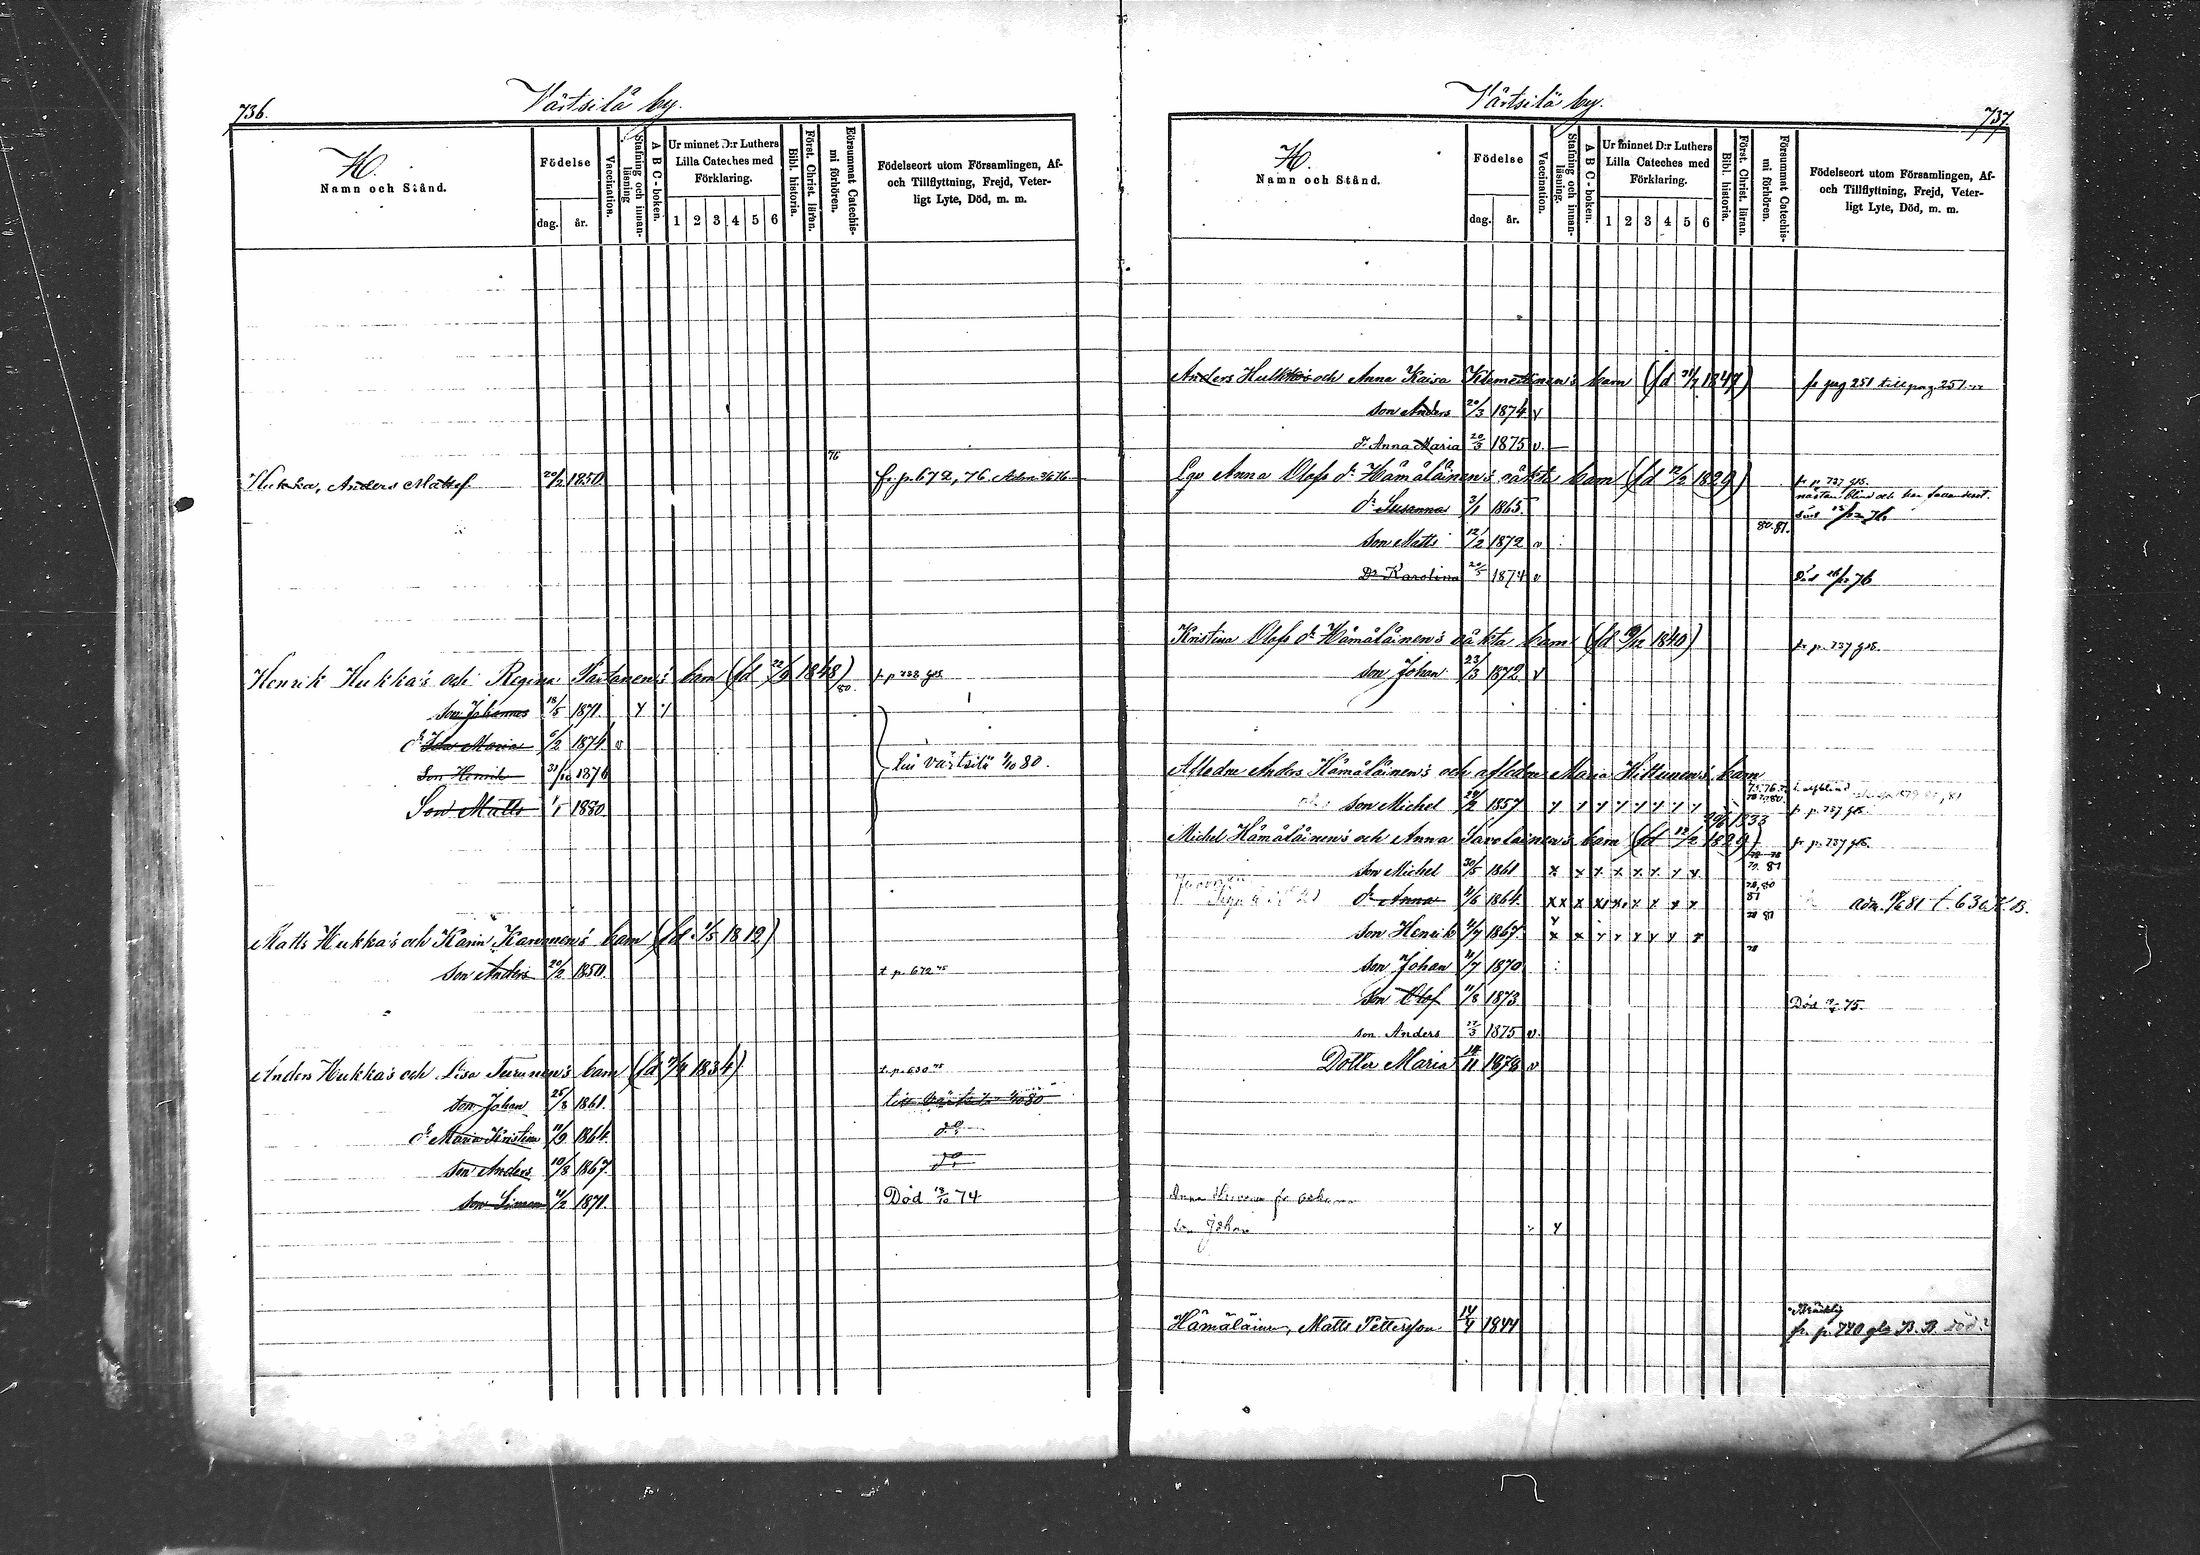 736.
Värtsilä by.
H.
Namn och Stånd.
Födelse
dag.
år.
Vaccination.
Stafning och innan-
läsning
A B C-boken.
Ur minnet D:r Luthers
Lilla Cateches med
Förklaring.
1 2 3 4 5 6
Bibl. historia.
Först. Christ. läran.
Försummat Catechis-
mi förhören.
Födelseort utom Församlingen, Af-
och Tillflyttning, Frejd, Veter-
ligt Lyte, Död, m. m.
76
Hukka, Anders Mattsf 20/2 1850 fr. p. 672, 76.
Henrik Hukka's och Regina Partanen's barn (fd 22/9 1848) fr p 738 gβ.
80.
son Johannes 18/5 1871.
dr Ida Maria 6/2 1874 v
son Henrik 31/10 1876 till Värtsilä 4/10 80.
Son Matts 1/1 1880
Matts Hukka's och Karin Karvinen's barn (fd 1/5 1812)
son Anders 20/2 1850. t. p. 672 75
Anders Hukka's och Lisa Turunen's barn (fd 7/4 1834) t. p. 630 75
son Johan 25/3 1861. till Värtsilä 4/10 80
dr Maria Kristina 11/9 1864. do
son Anders 10/8 1867. do
son Simon 4/2 1871. Död 13/10 74
737.
Värtsilä by.
H.
Namn och Stånd.
Födelse
dag.
år.
Vaccination.
Stafning och innan-
läsning.
A B C-boken.
Ur minnet D:r Luthers
Lilla Cateches med
Förklaring.
1 2 3 4 5 6
Bibl. historia.
Först. Christ. läran.
Försummat Catechis-
mi förhören.
Födelseort utom Församlingen, Af-
och Tillflyttning, Frejd, Veter-
ligt Lyte, Död, m. m.
Anders Hukka's och Anna Kaisa Klemettinen's barn (fd 1847) fr pag 251 till pag 251
son Anders 20/3 1874 v
dr Anna Maria 20/3 1875 v.
Lgv Anna Olofs dr Hämäläinen's oäkta barn (fd 12/2 1829) fr p. 737 gβ.
nästan blind och har
dr Susanna 3/1 1865. död 12/12 76
80. 81.
son Matts 12/2 1872 v
Dr Karolina 20/5 1874 v Död 76
Kristina Olofs dr Hämäläinen's oäkta barn (fd 9/12 1840) fr p. 737 gβ.
son Johan 23/3 1872 v
Afledne Anders Hämäläinen's och afledne Maria Hiltunen's barn
son Michel 24/2 1857 fr p. 737 gβ.
Michel Hämäläinen's och Anna Savolainen's barn (fd 12/2 1829) fr p. 737 gβ.
son Michel 30/5 1861
dr Anna 4/6 1864. adm. 81 t. 636 K B.
son Henrik 4/7 1867.
son Johan 11/7 1870
son Olof 11/8 1873. Död 75.
son Anders 27/3 1875 v.
Dotter Maria 14/11 1878 v
son Johan
Hämäläinen, Matts Pettersson 14/4 1841 fr. p. 740 gla B. B. död?